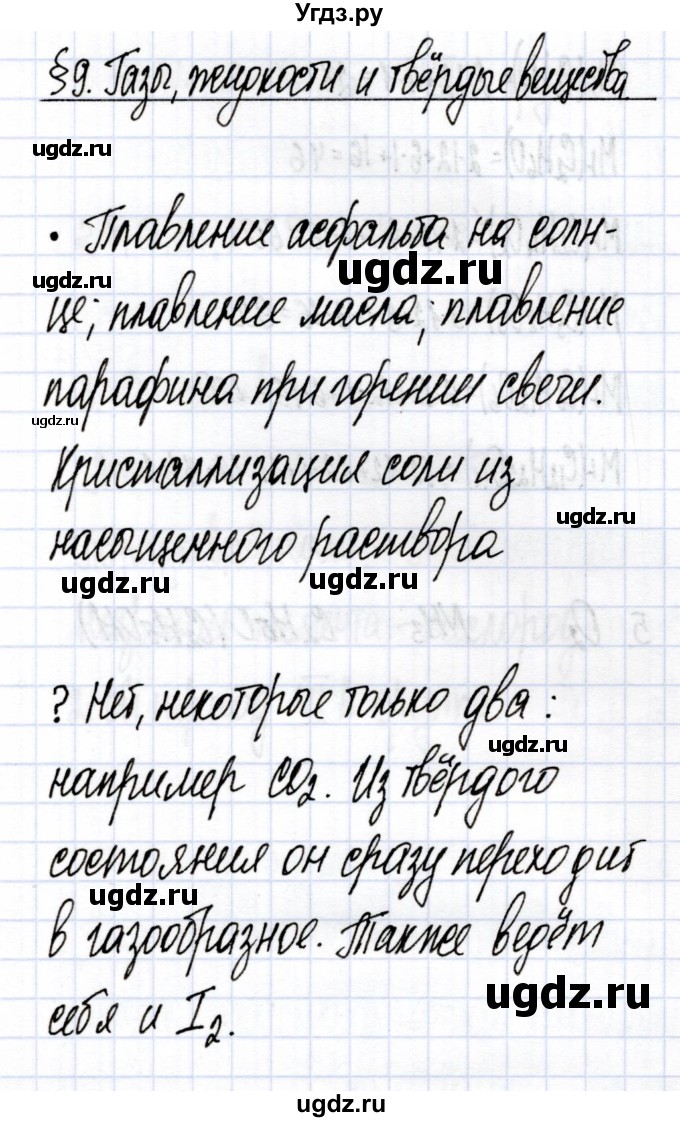 Угдз.ру
§9. Газы, жидкости и твёрдые вещества
ugdz.ru
• Плавление асфальта на солн-
ugdz.ru
ugdz.ru
це; плавление масла; плавление
парафина при горении свечи.
ugdz.ru
Кристаллизация соли из
ugdz.ru
насыщенного раствора
ugdz.ru
ugdz.ru
? Нет, некоторые только два:
ugdz.ru
например CO2. Из твёрдого
состояния он сразу переходит
ugdz.ru
в газообразное. Также ведёт
ugdz.ru
себя и I2.
ugdz.ru